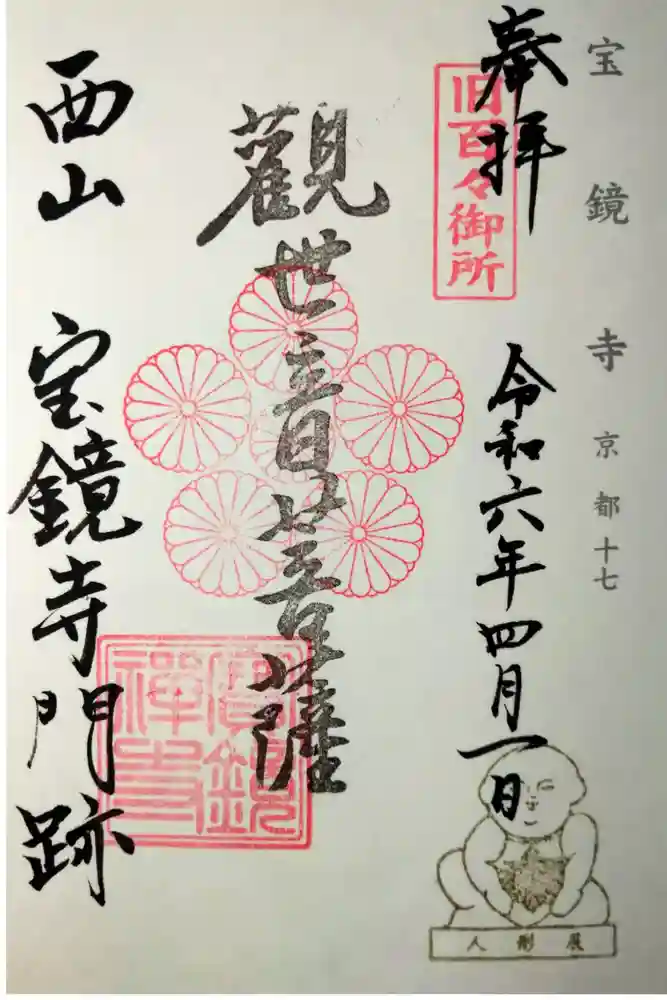 宝鏡寺 京都十七
奉拝
旧百々御所
令和六年四月一日
觀世音菩薩
西山 宝鏡寺門跡
寳鏡禅寺
人形展